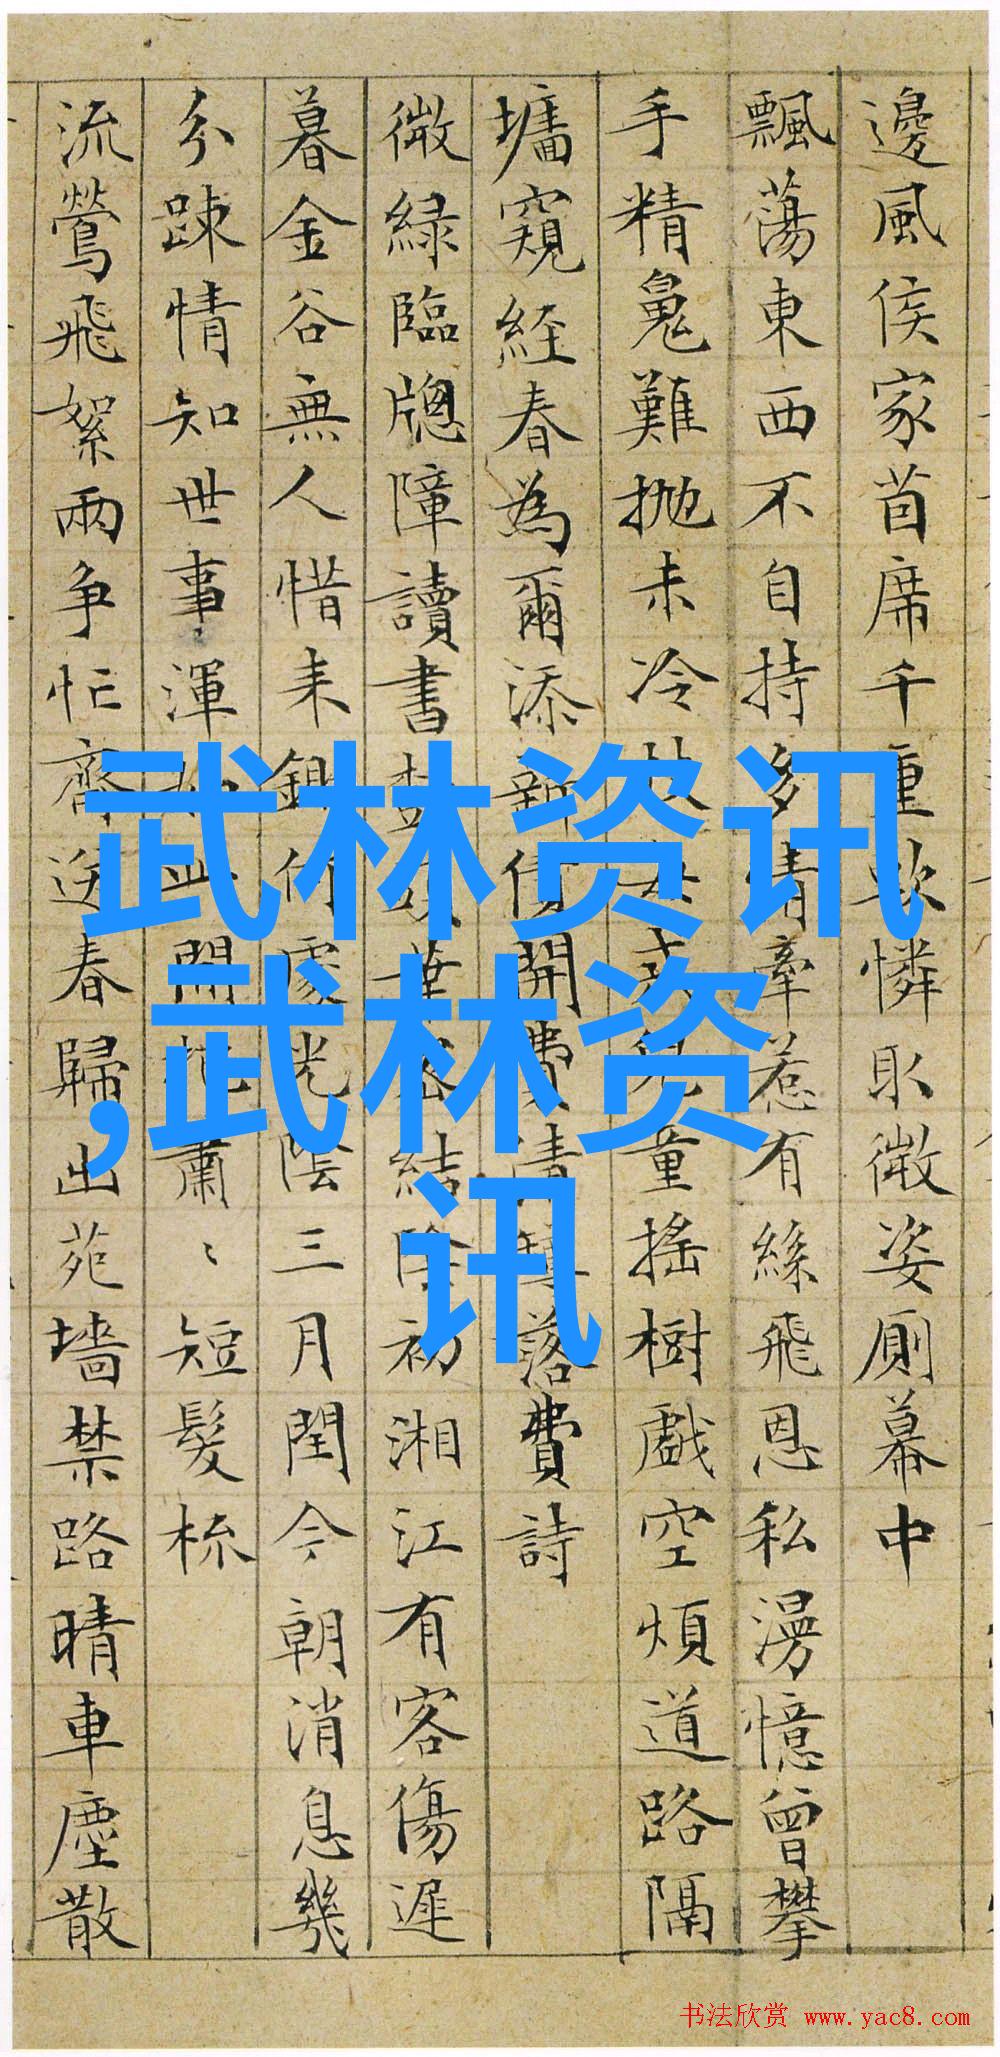 邊風侯家茵席千重軟憐取微姿厠幕中
飄蕩東西不自持多情牽惹有絲飛恩私漫憶曾攀
手精䰟難拋未冷童搖樹戲空煩道路隔
墻窺經春為爾添新債開費清樽落費詩
微綠臨牕障讀書結陰初湘江有客傷遲
暮金谷無人惜未鋤何處光陰三月閏今朝消息幾
分踈情知世事渾如此閒把蕭〻短髮梳
流鶯飛絮兩爭忙齊送春歸出苑墻禁路晴車塵散
武林资讯
,武林资
讯
书法欣赏 www.yac8.com